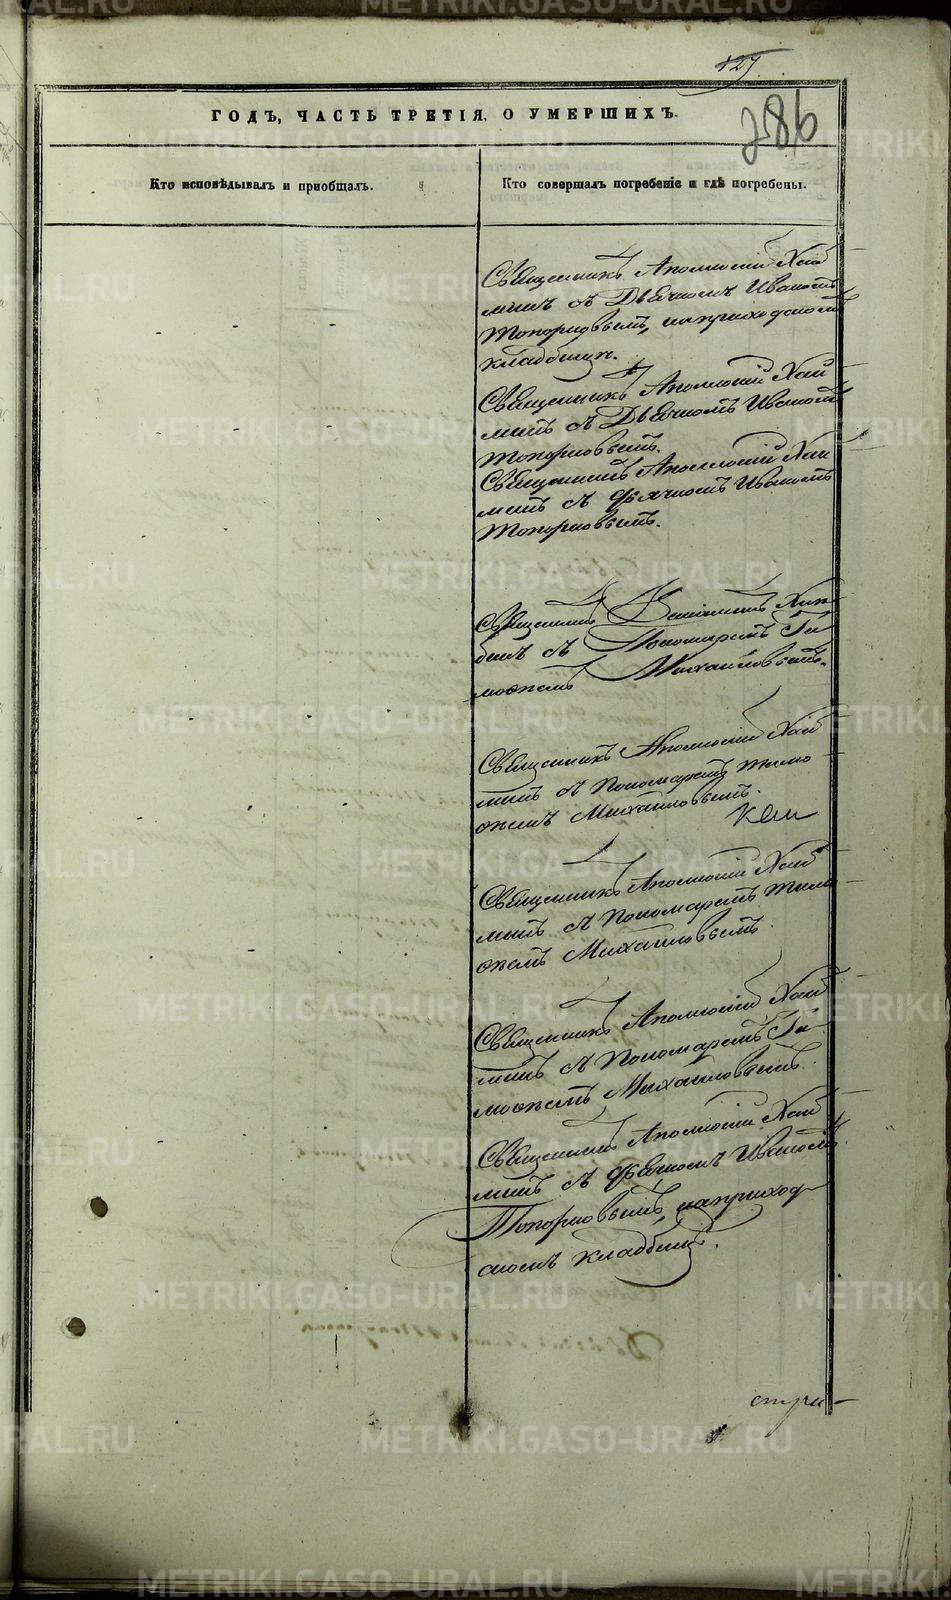 127.
286
ГОДЪ, ЧАСТЬ ТРЕТІЯ, О УМЕРШИХЪ.
Кто исповѣдывалъ и пріобщалъ.
Кто совершалъ погребеніе и гдѣ погребены.
Священникъ Аполлосій Хай
минъ съ Дьячкомъ Иваномъ
Топорковымъ, наприходскомъ
кладбищѣ.
Священникъ Аполлосій Хай
минъ съ Дьячкомъ Иваномъ
Священникъ Аполлосій Хай
минъ съ Дьячкомъ Иваномъ
Священникъ
съ Пономаремъ Ти
моѳеемъ Михайловымъ.
Священникъ Аполлосій Хай
минъ съ Пономаремъ Тимо
ѳеемъ Михайловымъ.
Священникъ Аполлосій Хай
минъ съ Пономаремъ Тимо
ѳеемъ Михайловымъ.
Священникъ Аполлосій Хай
минъ съ Пономаремъ Ти
моѳеемъ Михайловымъ.
Священникъ Аполлосій Хай
минъ съ Дьячкомъ Иваномъ
наприход
скомъ кладбищѣ.
METRIKI.GASO-URAL.RU